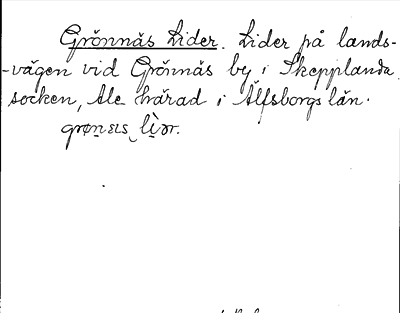 Grönnäs Lider. Lider på lands-
-vägen vid Grönnäs by i Skepplanda
socken, Ale härad i Älfsborgs län.
grønɛıs lìər.